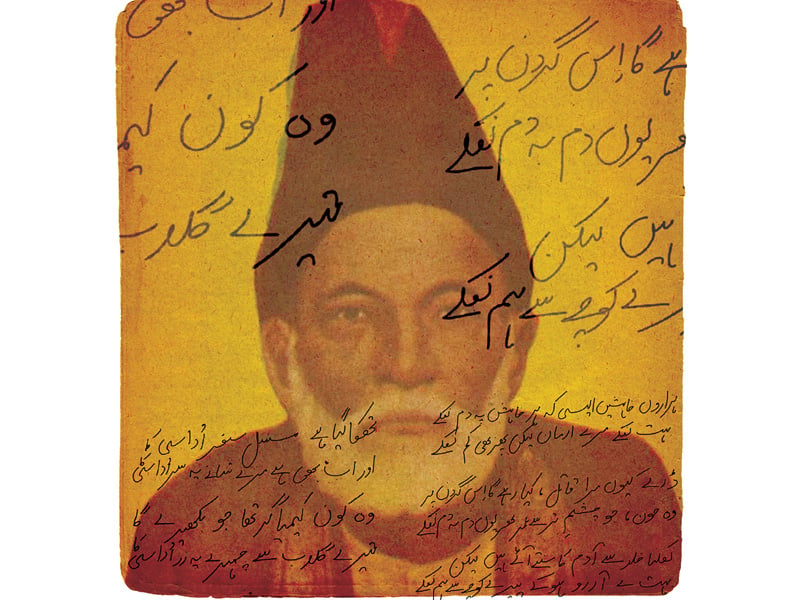 اور اب بھی
ہے گا اس گردن پر
وہ کون
بھر یوں دم بہ دم نکلے
تیرے گلاب
ہیں لیکن
کوچے سے ہم نکلے
ہزاروں خواہشیں ایسی کہ ہر خواہش پہ دم نکلے
بہت نکلے مرے ارمان لیکن پھر بھی کم نکلے
ڈرے کیوں مرا قاتل، کیا رہے گا اس گردن پر
وہ خون، جو چشم تر سے عمر بھر یوں دم بہ دم نکلے
نکلنا خلد سے آدم کا سنتے آئے ہیں لیکن
بہت بے آبرو ہو کے تیرے کوچے سے ہم نکلے
تھکا گیا ہے مسلسل سفر اداسی کا
اور اب بھی ہے مرے شانے پہ سر اداسی کا
وہ کون کیمیا گر تھا جو بکھیرے گا
تیرے گلاب سے چہرے پہ زر اداسی کا